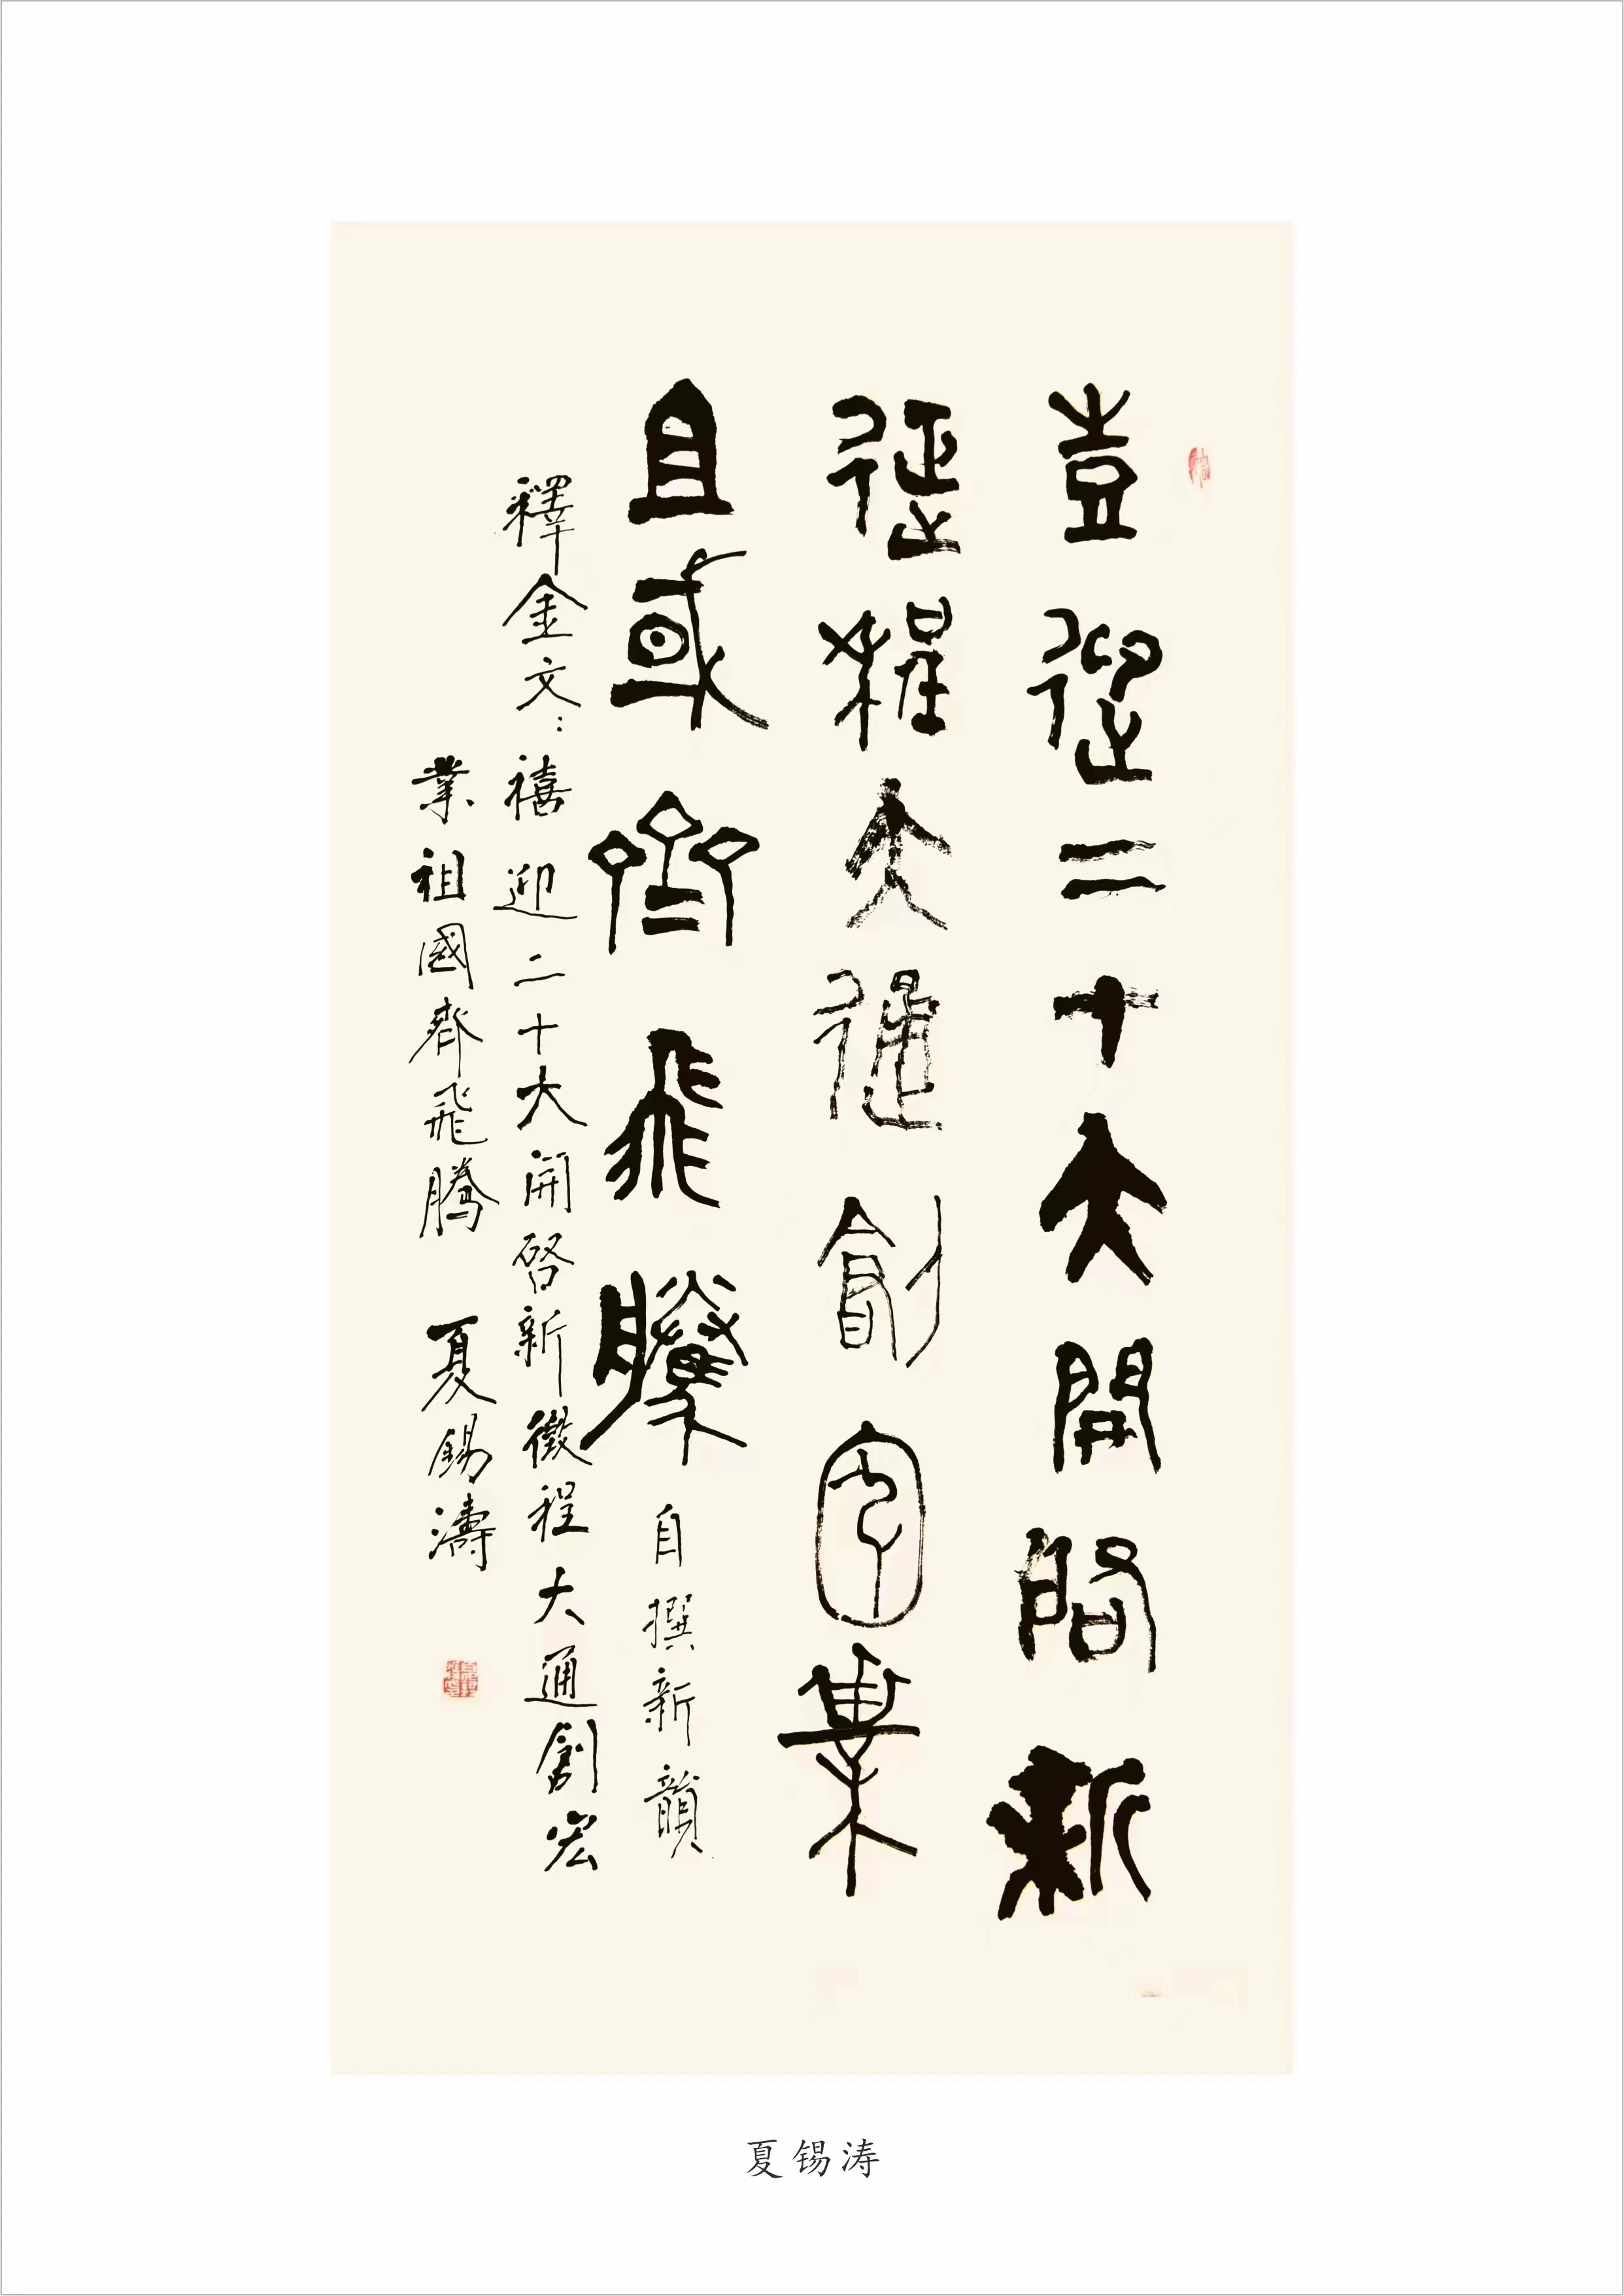 壴迎二十大開啓新
征程大通創宏業
且或齊飛騰 自撰新韻
釋金文：禧迎二十大開啓新徵程大通創宏
業祖國齊飛騰 夏錫濤
夏锡涛